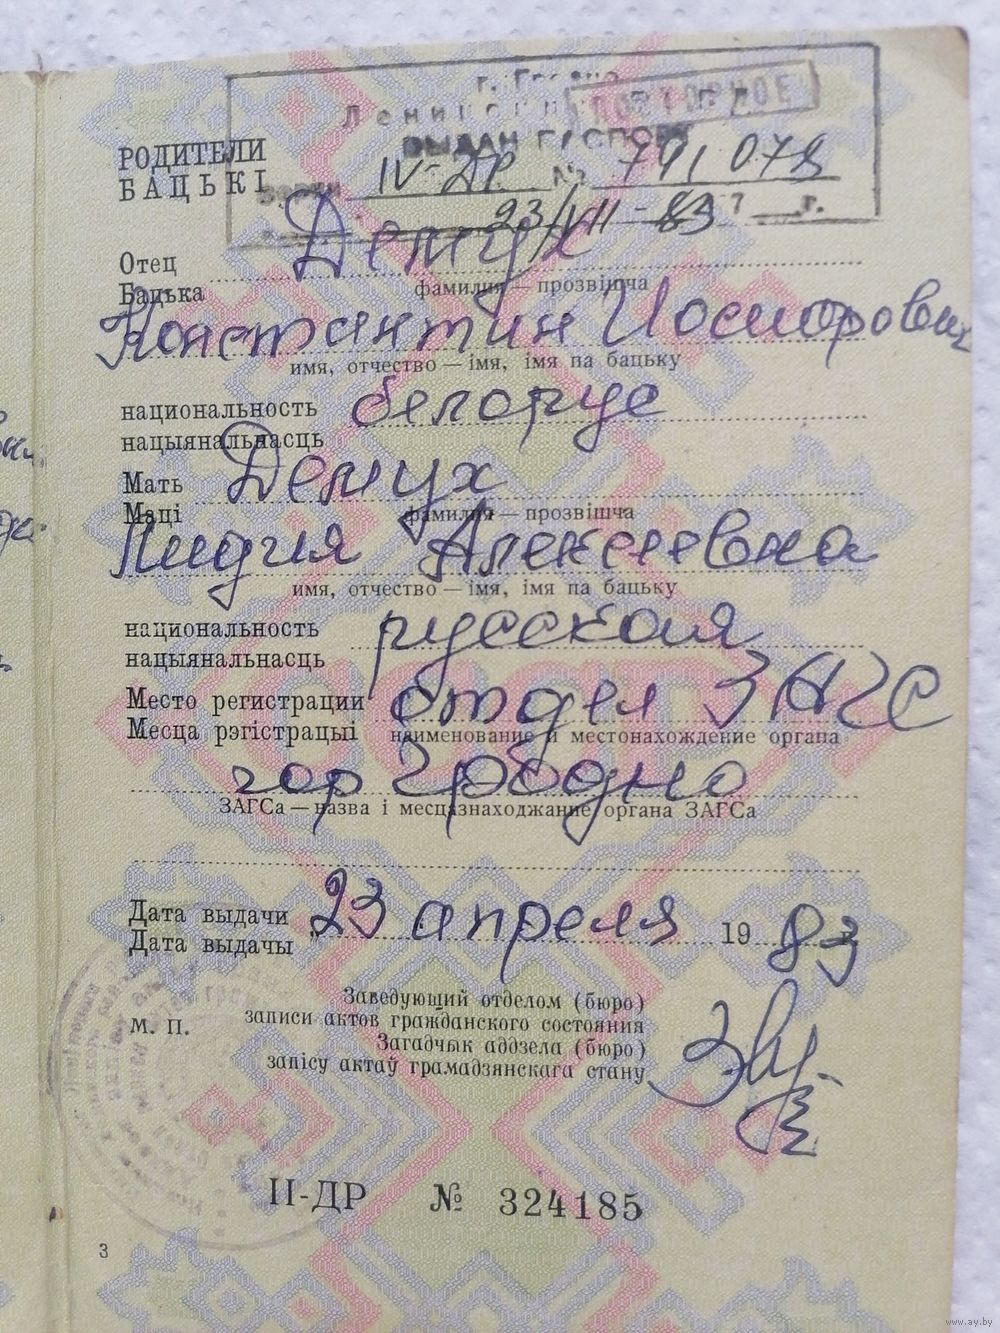 г. Гродно
Ленинск
ПОВТОРНОЕ
ВЫДАН ПАСПОРТ
РОДИТЕЛИ
БАЦЬКІ
серия IV-ДР № 791 078
23/VII-83 г.
Отец Демух
Бацька
фамилия — прозвішча
Константин Иосифович
имя, отчество — імя, імя па бацьку
национальность белорус
нацыянальнасць
Мать Демух
Маці
фамилия — прозвішча
Лидия Алексеевна
имя, отчество — імя, імя па бацьку
национальность русская
нацыянальнасць
Место регистрации отдел ЗАГС
Месца рэгістрацыі наименование и местонахождение органа
гор Гродно
ЗАГСа — назва і месцазнаходжание органа ЗАГСа
Дата выдачи 23 апреля 1983
Дата выдачы
Заведующий отделом (бюро)
М. П. записи актов гражданского состояния
Загадчык аддзела (бюро)
запісу актаў грамадзянскага стану
II-ДР № 324185
3
www.ay.by